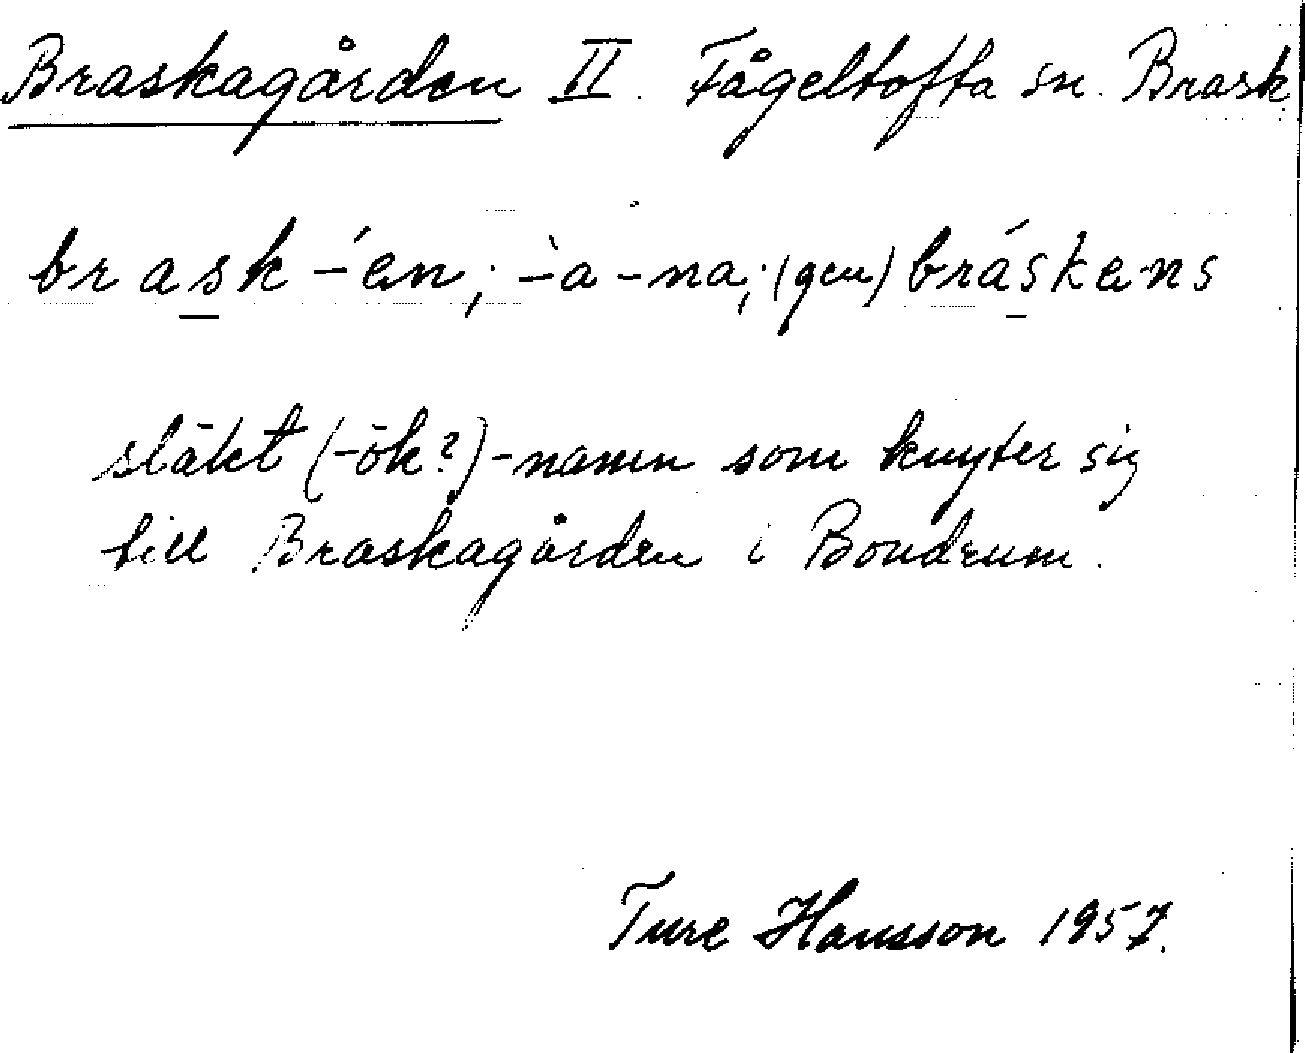 Braskagården II. Fågeltofta sn. Brask
brask -´en; -`a -na; (gen) bráskens
släkt (-ök?) -namn som knyter sig
till Braskagården i Bondrum.
Ture Hansson 1957.